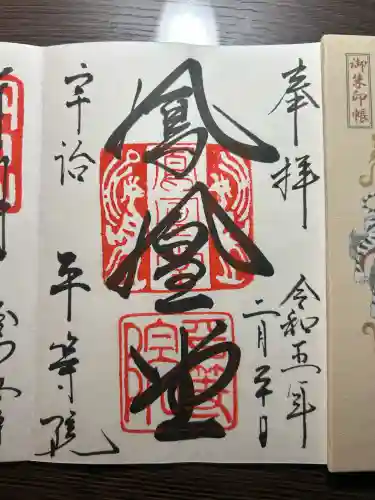 御朱印帳
奉拝
令和五年
二月二十日
鳳凰堂
宇治
平等院